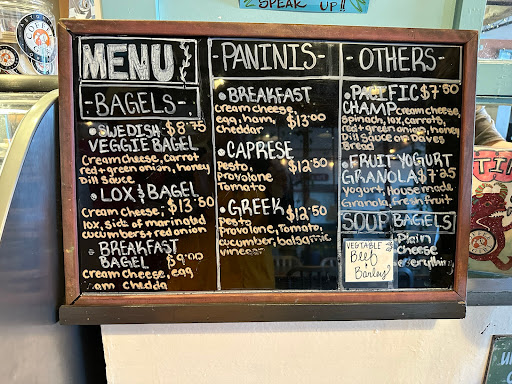 SPEAK UP!!
MENU
-BAGELS-
• SWEDISH $8.75
VEGGIE BAGEL
Cream cheese, carrot
red + green onion, honey
Dill sauce
• LOX & BAGEL
Cream cheese, $13.50
lox, side of marinated
cucumbers + red onion
• BREAKFAST
BAGEL $9.00
cream cheese, egg
am chedda
-PANINIS-
• BREAKFAST
cream cheese
egg, ham, $13.00
cheddar
• CAPRESE
Pesto, $12.50
Provolone
Tomato
• GREEK $12.50
pesto
Provolone, Tomato,
cucumber, balsamic
vinegar
-OTHERS-
• PACIFIC $7.50
CHAMP cream cheese,
spinach, lox, carrots,
red + green onion, honey
Dill sauce on Daves
Bread
• FRUIT YOGURT
GRANOLA $7.25
yogurt, House made
Granola, Fresh fruit
SOUP
VEGTABLE
Beef
& Barley
BAGELS
Plain
cheese
everything